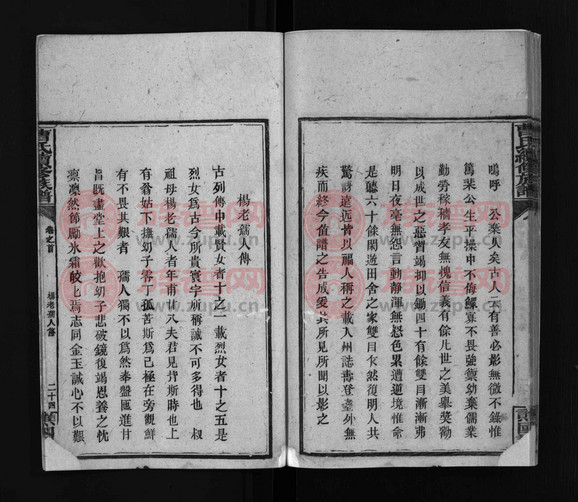 曹氏續修族譜
嗚呼 公藥人矣古人云有善必彰無微不錄惟
篤棐公生平操申不侮鰥寡不畏強禦幼棄儒業
勤勞稼穡孝友無愧信義有餘凡世之美舉莫勸
以成世之惡習竭抑以錫四十有餘雙目漸漸弗
明日夜毫無怨言動靜渾無怒色累遭逆境惟命
是聽六十餘閱遊田舍之家雙目仄然復明人共
驚訝遠邇皆以福人稱之載入州誌壽登耋外無
疾而終今值譜之告成爰共所見所聞以彰之
楊老孺人傳
古列傳中載賢女者十之一載烈女者十之五是
烈女為古今所貴寰宇所稱誠不可多得也 叔
祖母楊老孺人年甫廿八夫君見背斯時也上
有翁姑下撫幼子零丁孤苦斯為已極在旁觀鮮
有不畏其艱者 孺人獨不以為然奉盤匜進甘
旨既盡堂上之歡抱幼子悲破鏡復竭恩養之忱
凜凜然節勵氷霜皎皎焉志同金玉誠心不以艱
曹氏續修族譜
卷之首
楊老孺人傳
二十四